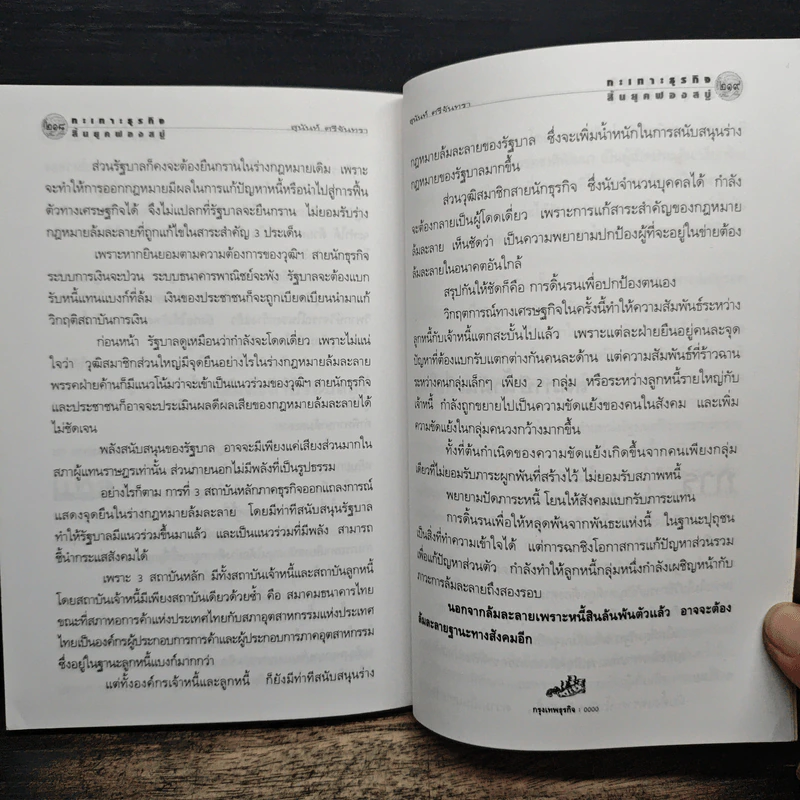 ๒๑๘
กะเทาะธุรกิจ
สิ้นยุคฟองสบู่
สุนันท์ ศรีจันทรา
ส่วนรัฐบาลก็คงจะต้องยืนกรานในร่างกฎหมายเดิม เพราะ
จะทำให้การออกกฎหมายมีผลในการแก้ปัญหาหนี้หรือนำไปสู่การฟื้น
ตัวทางเศรษฐกิจได้ จึงไม่แปลกที่รัฐบาลจะยืนกราน ไม่ยอมรับร่าง
กฎหมายล้มละลายที่ถูกแก้ไขในสาระสำคัญ 3 ประเด็น
เพราะหากยินยอมตามความต้องการของวุฒิฯ สายนักธุรกิจ
ระบบการเงินจะป่วน ระบบธนาคารพาณิชย์จะพัง รัฐบาลจะต้องแบก
รับหนี้แทนแบงก์ที่ล้ม เงินของประชาชนก็จะถูกเบียดเบียนนำมาแก้
วิกฤติสถาบันการเงิน
ก่อนหน้า รัฐบาลดูเหมือนว่ากำลังจะโดดเดี่ยว เพราะไม่แน่
ใจว่า วุฒิสมาชิกส่วนใหญ่มีจุดยืนอย่างไรในร่างกฎหมายล้มละลาย
พรรคฝ่ายค้านก็มีแนวโน้มว่าจะเข้าเป็นแนวร่วมของวุฒิฯ สายนักธุรกิจ
และประชาชนก็อาจจะประเมินผลดีผลเสียของกฎหมายล้มละลายได้
ไม่ชัดเจน
พลังสนับสนุนของรัฐบาล อาจจะมีเพียงแค่เสียงส่วนมากใน
สภาผู้แทนราษฎรเท่านั้น ส่วนภายนอกไม่มีพลังที่เป็นรูปธรรม
อย่างไรก็ตาม การที่ 3 สถาบันหลักภาคธุรกิจออกแถลงการณ์
แสดงจุดยืนในร่างกฎหมายล้มละลาย โดยมีท่าทีสนับสนุนรัฐบาล
ทำให้รัฐบาลมีแนวร่วมขึ้นมาแล้ว และเป็นแนวร่วมที่มีพลัง สามารถ
ชี้นำกระแสสังคมได้
เพราะ 3 สถาบันหลัก มีทั้งสถาบันเจ้าหนี้และสถาบันลูกหนี้
โดยสถาบันเจ้าหนี้มีเพียงสถาบันเดียวด้วยซ้ำ คือ สมาคมธนาคารไทย
ขณะที่สภาหอการค้าแห่งประเทศไทยกับสภาอุตสาหกรรมแห่งประเทศ
ไทยเป็นองค์กรผู้ประกอบการการค้าและผู้ประกอบการภาคอุตสาหกรรม
ซึ่งอยู่ในฐานะลูกหนี้แบงก์มากกว่า
แต่ทั้งองค์กรเจ้าหนี้และลูกหนี้ ก็ยังมีท่าทีสนับสนุนร่าง
กะเทาะธุรกิจ
สิ้นยุคฟองสบู่
๒๑๙
สุนันท์ ศรีจันทรา
กฎหมายล้มละลายของรัฐบาล ซึ่งจะเพิ่มน้ำหนักในการสนับสนุนร่าง
กฎหมายของรัฐบาลมากขึ้น
ส่วนวุฒิสมาชิกสายนักธุรกิจ ซึ่งนับจำนวนบุคคลได้ กำลัง
จะต้องกลายเป็นผู้โดดเดี่ยว เพราะการแก้สาระสำคัญของกฎหมาย
ล้มละลาย เห็นชัดว่า เป็นความพยายามปกป้องผู้ที่จะอยู่ในข่ายต้อง
ล้มละลายในอนาคตอันใกล้
สรุปกันให้ชัดก็คือ การดิ้นรนเพื่อปกป้องตนเอง
วิกฤตการณ์ทางเศรษฐกิจในครั้งนี้ทำให้ความสัมพันธ์ระหว่าง
ลูกหนี้กับเจ้าหนี้แตกสะบั้นไปแล้ว เพราะแต่ละฝ่ายยืนอยู่คนละจุด
ปัญหาที่ต้องแบกรับแตกต่างกันคนละด้าน แต่ความสัมพันธ์ที่ร้าวฉาน
ระหว่างคนกลุ่มเล็กๆ เพียง 2 กลุ่ม หรือระหว่างลูกหนี้รายใหญ่กับ
เจ้าหนี้ กำลังถูกขยายไปเป็นความขัดแย้งของคนในสังคม และเพิ่ม
ความขัดแย้งในกลุ่มคนวงกว้างมากขึ้น
ทั้งที่ต้นกำเนิดของความขัดแย้งเกิดขึ้นจากคนเพียงกลุ่ม
เดียวที่ไม่ยอมรับภาระผูกพันที่สร้างไว้ ไม่ยอมรับสภาพหนี้
พยายามปัดภาระหนี้ โยนให้สังคมแบกรับภาระแทน
การดิ้นรนเพื่อให้หลุดพ้นจากพันธะแห่งหนี้ ในฐานะปุถุชน
เป็นสิ่งที่ทำความเข้าใจได้ แต่การฉกชิงโอกาสการแก้ปัญหาส่วนรวม
เพื่อแก้ปัญหาส่วนตัว กำลังทำให้ลูกหนี้กลุ่มหนึ่งกำลังเผชิญหน้ากับ
ภาวะการล้มละลายถึงสองรอบ
นอกจากล้มละลายเพราะหนี้สินล้นพ้นตัวแล้ว อาจจะต้อง
ล้มละลายฐานะทางสังคมอีก
กรุงเทพธุรกิจ / 0000